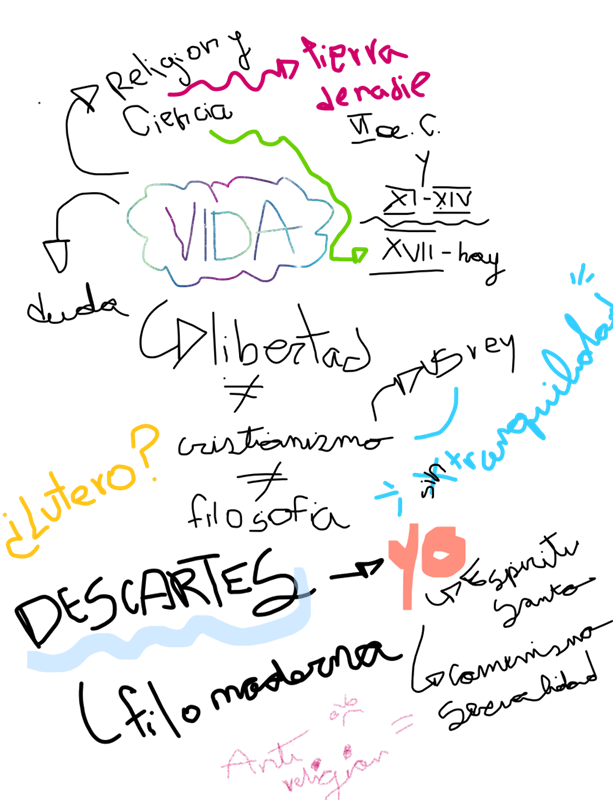 Religion y
Ciencia
tierra
de nadie
VI a. C.
y
XI-XIV
XVII-hoy
VIDA
duda
libertad
≠
vs rey
cristianismo
≠
filosofía
¿Lutero?
sin
tranquilidad
DESCARTES → YO
Espiritu
Santo
filo moderna
comunismo
Anti
religion =